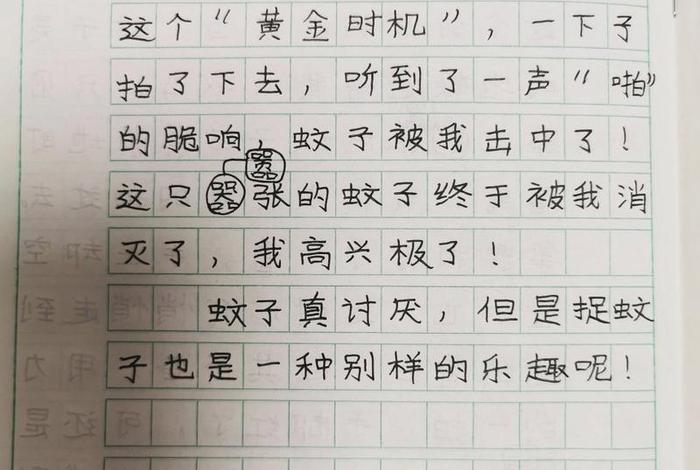 这个“黄金时机”，一下子
拍了下去，听到了一声“啪”
的脆响，蚊子被我击中了！
嚣
这只嚣张的蚊子终于被我消
灭了，我高兴极了！
蚊子真讨厌，但是捉蚊
子也是一种别样的乐趣呢！